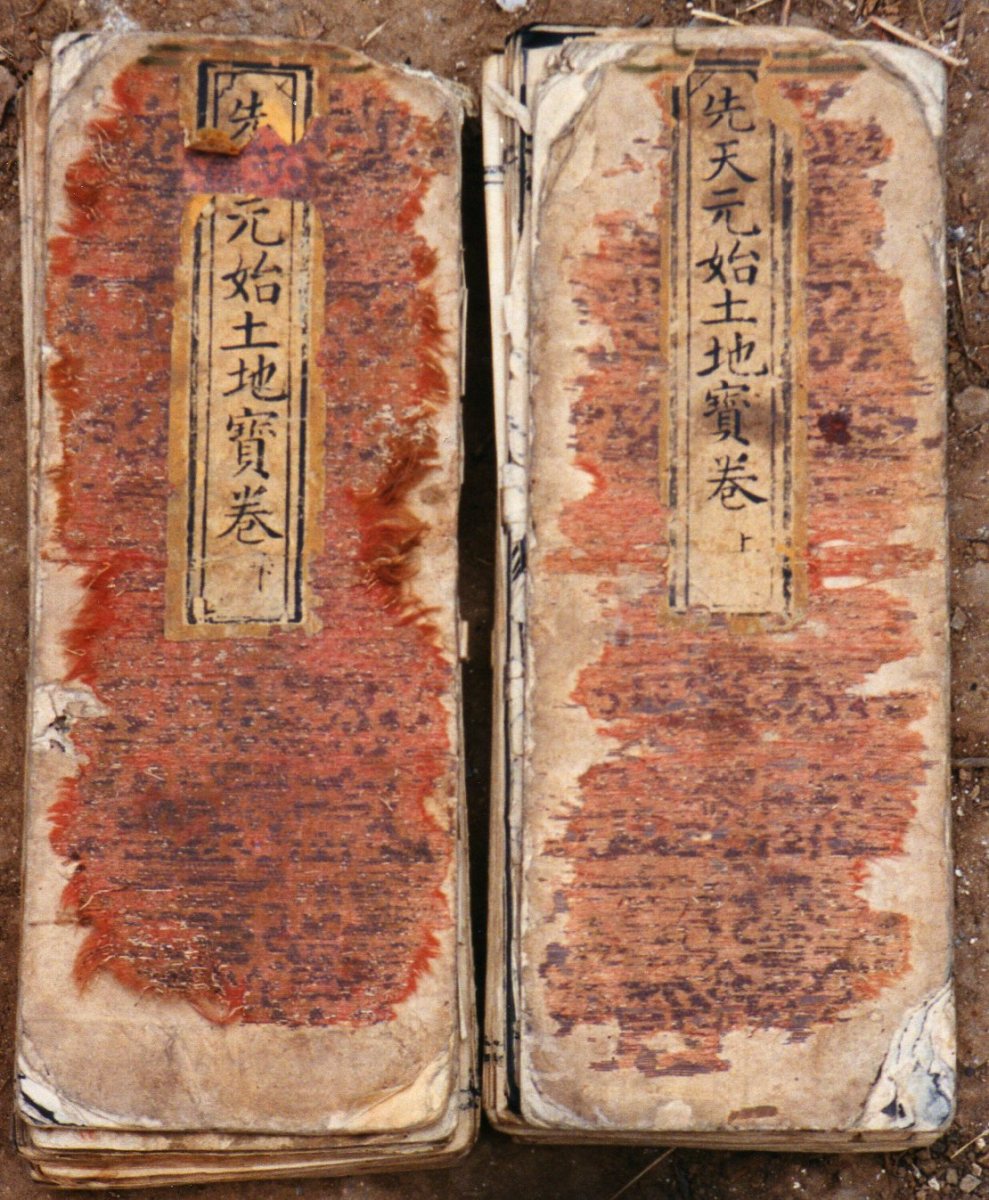 先天元始土地寶卷 上
先 元始土地寶卷 下